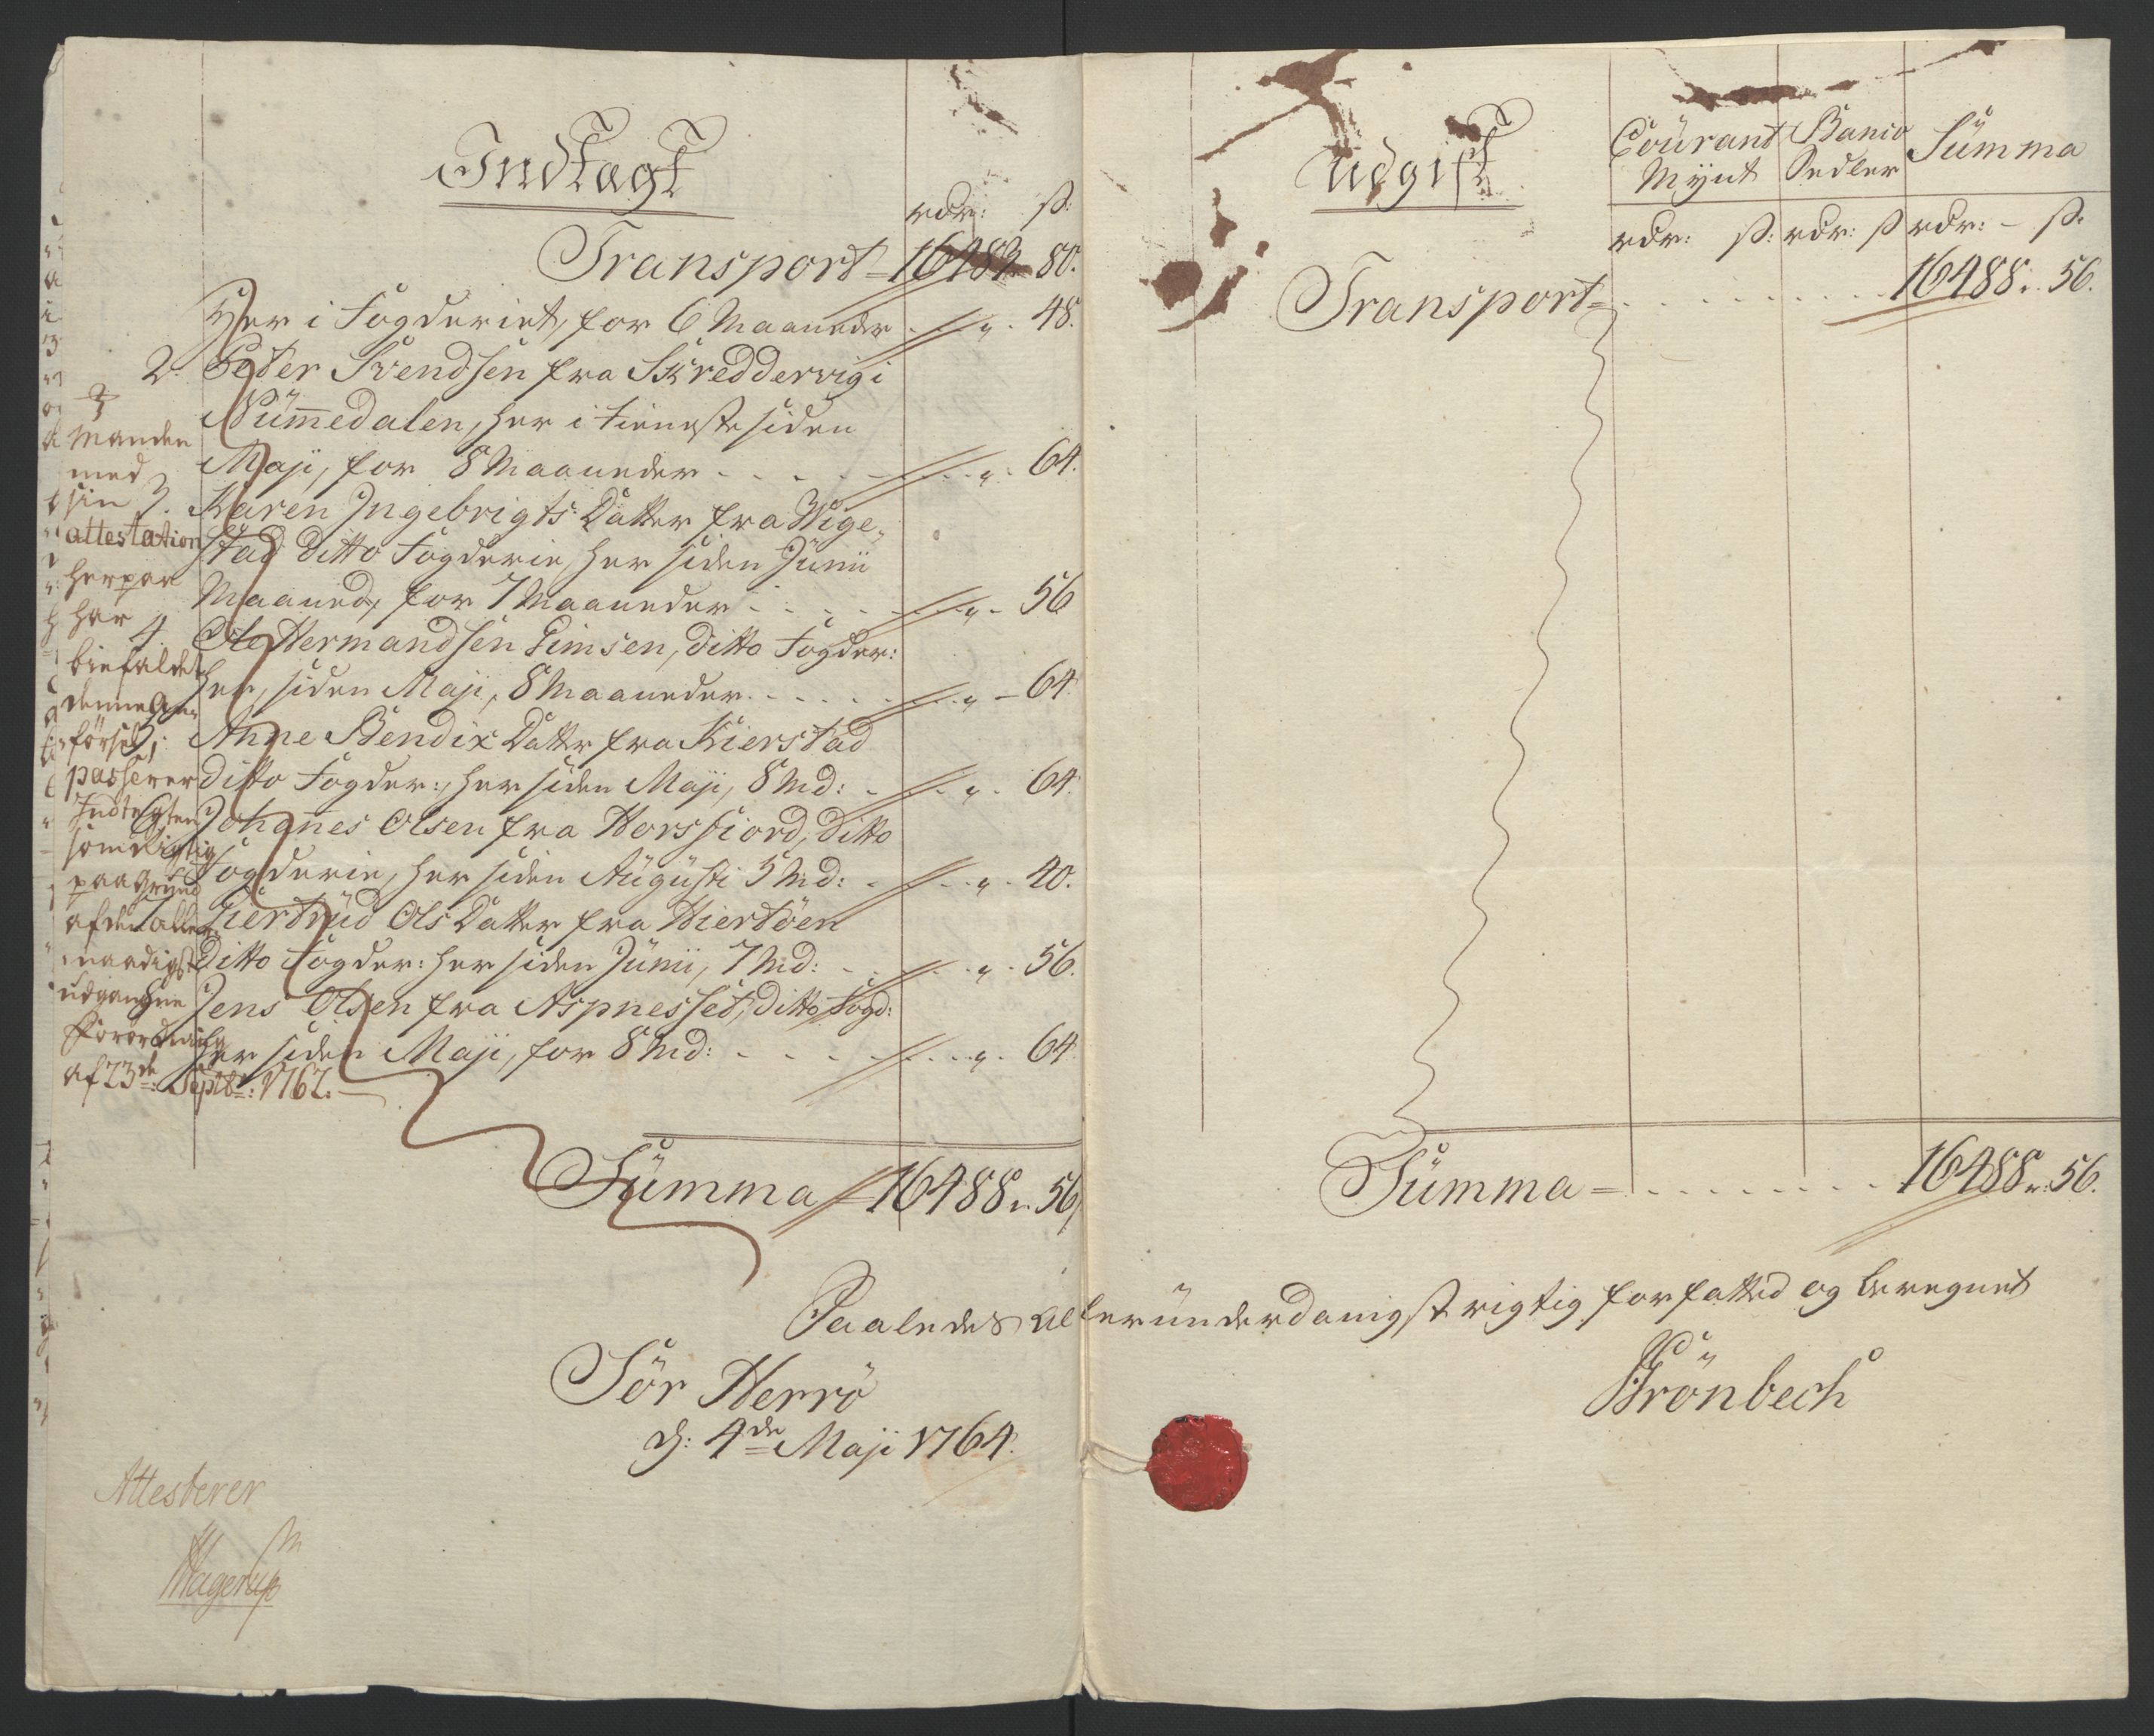 Indtægt
rdr: ß:
Transport = 16483. 80.
Her i Fogderiet, for 6 Maaneder - - " - 48.
2. Peter Svendsen fra Skreddervig i
Nummedalen, her i tieneste siden
Maji, for 8 Maaneder - - - - " - 64.
3. Karen Ingebrigts Datter fra Wige-
stad ditto Fogderie, her siden Junii
Maaned, for 7 Maaneder - - - - " - 56
4. Ole Hermandsen Eimsen, ditto Fogder:
her, siden Maji, 8 Maaneder. - - - - " - 64.
5. Anne Bendix Datter fra Kierstad
ditto Fogder:, her siden Maji, 8 Md: - - " - 64.
6. Johannes Olsen fra Horsfiord, ditto
Fogderie, her siden Augusti 5 Md: - - " - 40.
7. Giertrud Ols Datter fra Hiertøen
ditto Fogder: her siden Junii, 7 Md: - - " - 56.
Jens Olsen fra Aspnesset, ditto Fogd:
her siden Maji, for 8 Md: - - - - " - 64
Summa = 16488 " 56
Manden
med
sin
attestation
herpaa
har
biefaldet
denne An-
førsel;
passerer
Indtegten
som rigtig
paa Grund
af den aller-
naadigst
udgangne
Forordning
af 23de Septbr: 1762.
Udgift
Courant Mynt Banco Sedler Summa
rdr: ß: rdr: ß rdr: - ß:
Transport = - - - - - - - - 16488 " 56.
Summa = - - - - - - - 16488 " 56.
Saaledes allerunderdanigst rigtig forfatted og beregnet
Sør Herrö
d: 4de Maji 1764.
Grönbech
Attesterer
Hagerup